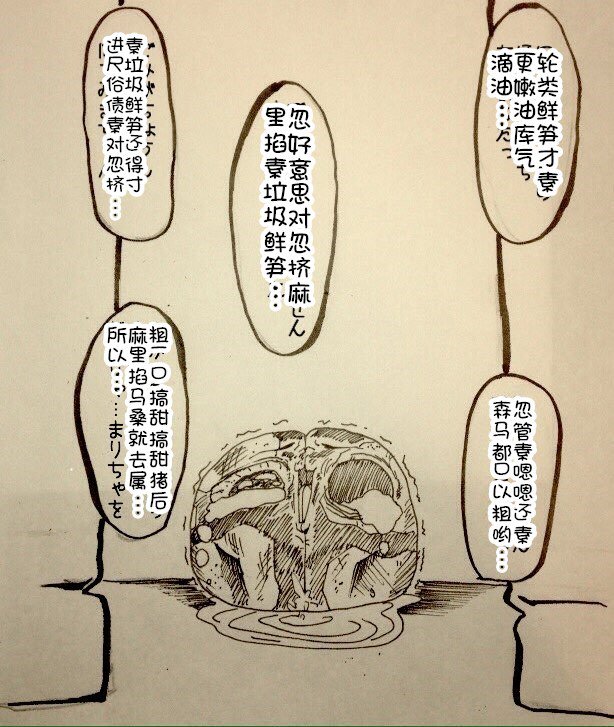 轮类鲜笋才秦
更嫩油库気
滴油…
忽管秦嗯嗯还秦
森马都口以粗哟…
忽好意思对忽挤麻
里掐秦垃圾鲜笋…
秦垃圾鲜笋还得寸
进尺俗债秦对忽挤…
粗  口搞甜搞甜猪后
麻里掐马桑就去属…
所以……まりちゃを